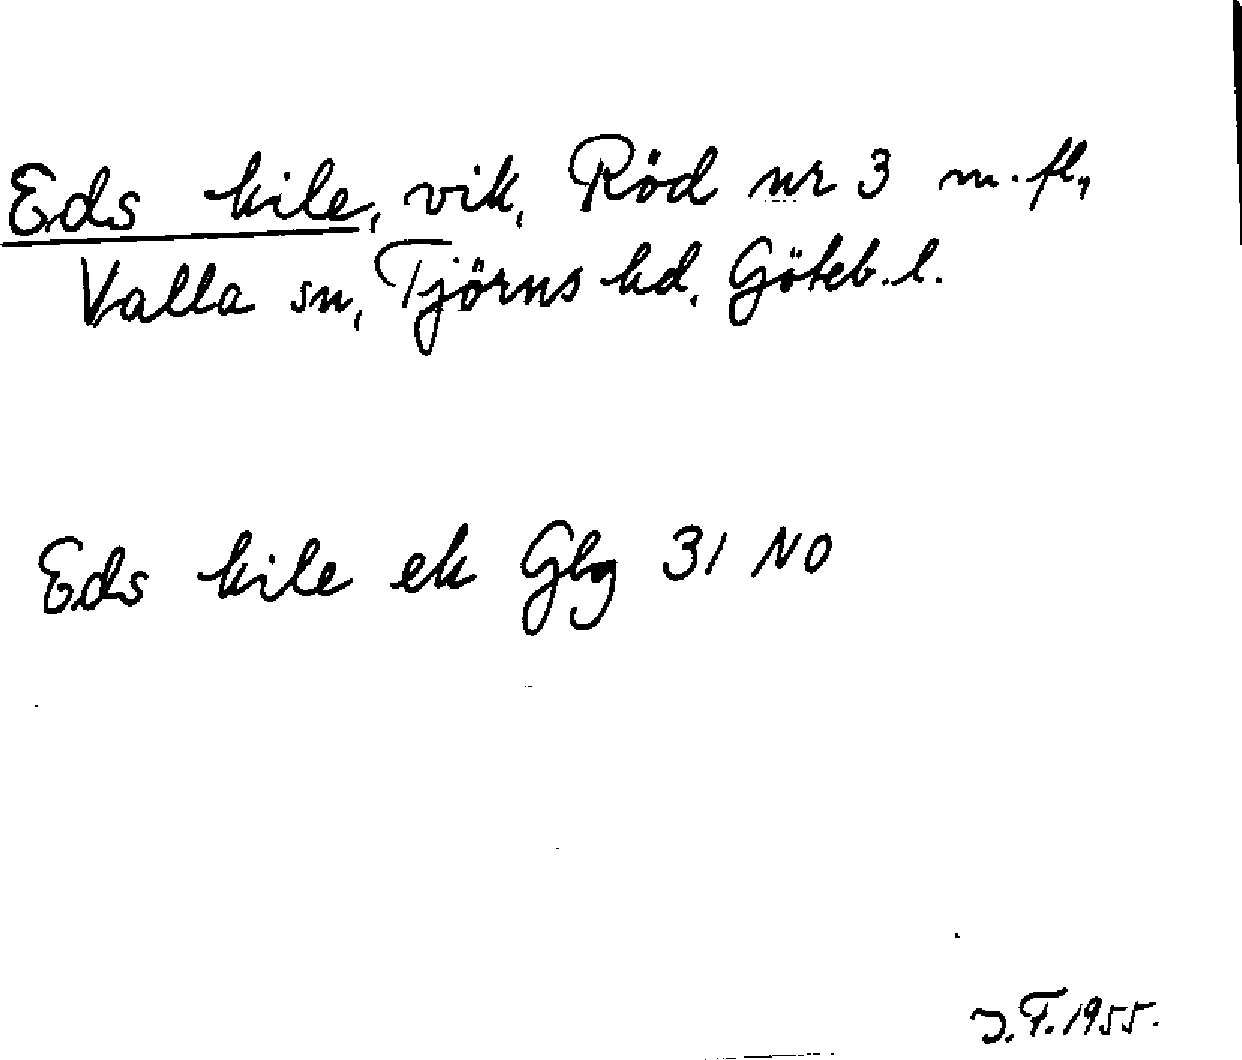 Eds kile, vik, Röd nr 3 m.fl.,
Valla sn, Tjörns hd, Göteb. l.
Eds kile ek Gbg 31 NO
J.F. 1955.